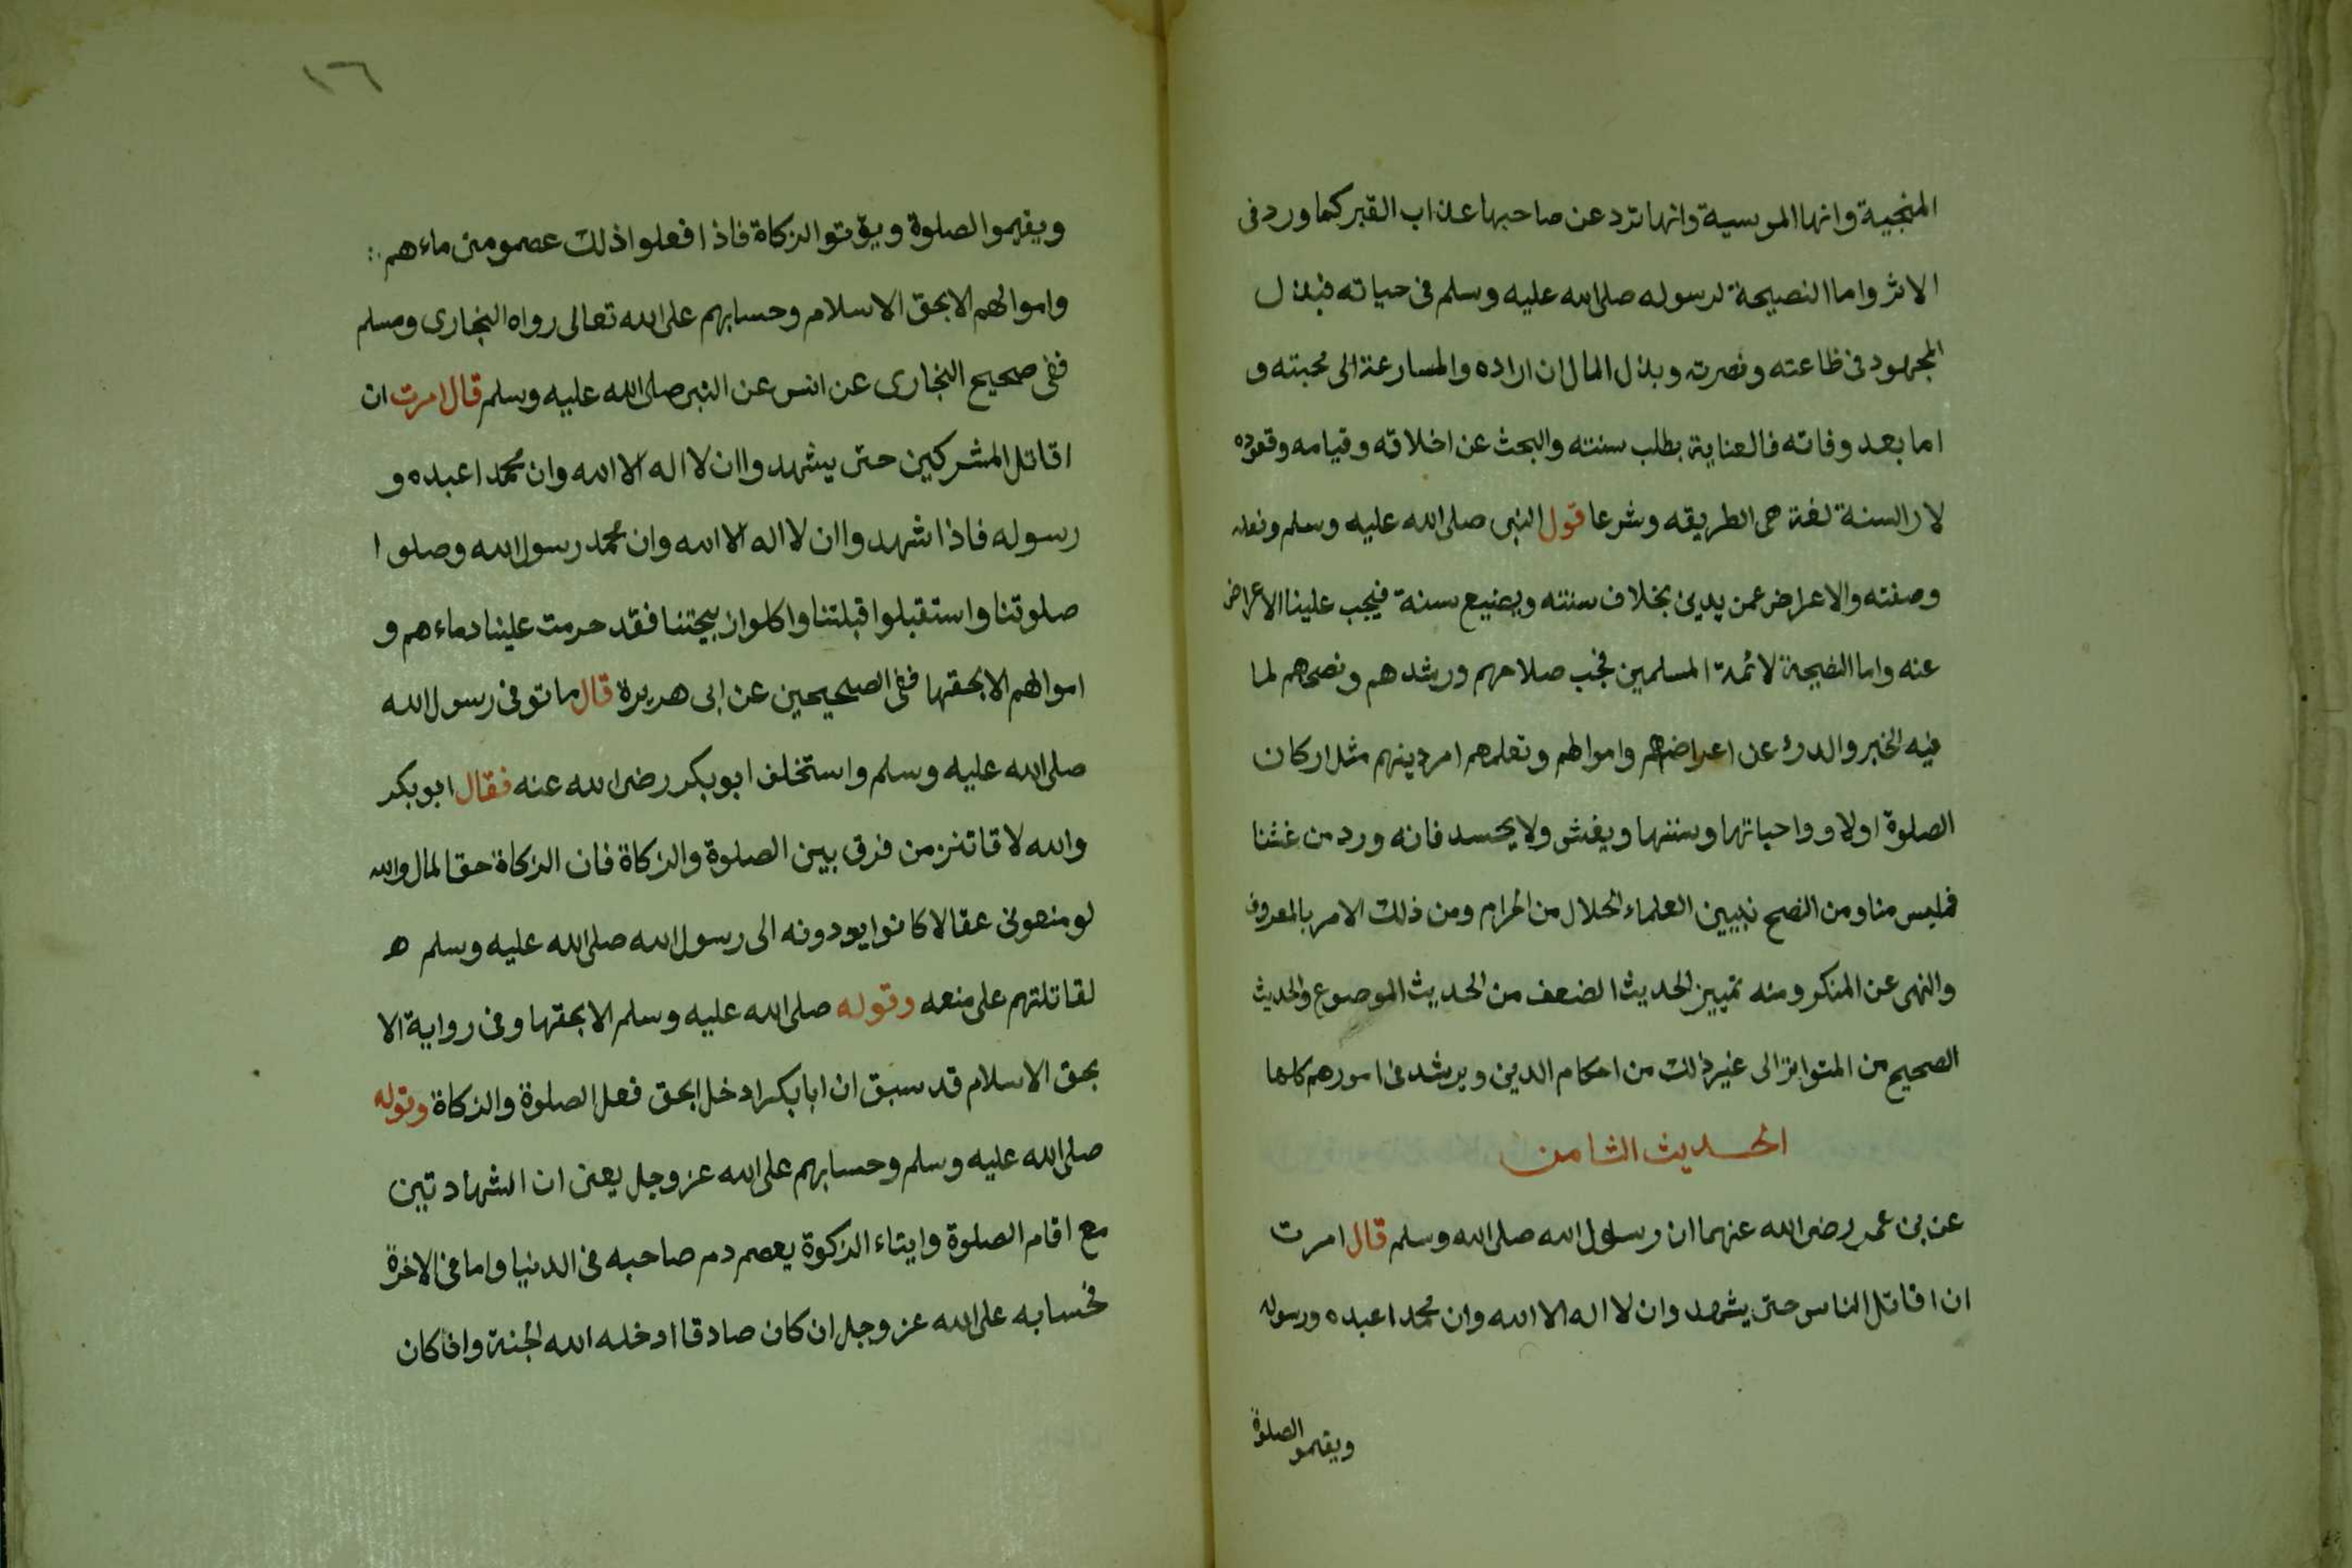 المنجية وانها الموسية وانها ترد عن صاحبها عذاب القبر كما ورد فى
الاثر واما النصيحة لرسوله صلى الله عليه وسلم فى حياته فبذل
المجهود فى طاعته ونصرته وبذل المال ان اراده والمسارعة الى محبته و
اما بعد وفاته فالعناية بطلب سنته والبحث عن اخلاقه وقيامه وقعوده
لان السنة لغة هى الطريقه وشرعا قول النبى صلى الله عليه وسلم وفعله
وصفته والاعراض عمن يدين بخلاف سنته ويضيع سنة فيجب علينا الاعراض
عنه واما النصيحة لائمة المسلمين فحب صلاحهم ورشدهم ونصحهم لما
فيه الخير والدرء عن اعراضهم واموالهم وتعلمهم امر دينهم مثل اركان
الصلوة اولا وواجباتها وسننها ويغش ولا يحسد فانه ورد من غشنا
فمليس منا ومن النصح تبيين العلماء الحلال من الحرام ومن ذلك الامر بالمعروف
والنهى عن المنكر ومنه تمييز الحديث الضعف من الحديث الموضوع والحديث
الصحيح من المتواتر الى غير ذلك من احكام الدين ويرشد فى امورهم كلها
الحديث الثامن
عن بن عمر رضى الله عنهما ان رسول الله صلى الله وسلم قال امرت
ان اقاتل الناس حتى يشهد وان لا اله الا الله وان محمدا عبده ورسوله
ويقيمو الصلوة
١٦
ويقيموا الصلوة ويؤتوا الزكاة فاذا فعلوا ذلك عصمو منى ماءهم
واموالهم الا بحق الاسلام وحسابهم على الله تعالى رواه البخارى ومسلم
ففى صحيح البخارى عن انس عن النبى صلى الله عليه وسلم قال امرت ان
اقاتل المشركين حتى يشهد واان لا اله الا الله وان محمدا عبده و
رسوله فاذا شهد واان لا اله الا الله وان محمد رسول الله وصلوا
صلوتنا واستقبلوا قبلتنا واكلوا ذبيحتنا فقد حرمت علينا دماءهم و
اموالهم الا بحقها ففى الصحيحين عن ابى هريرة قال ما توفى رسول الله
صلى الله عليه وسلم واستخلف ابو بكر رضى الله عنه فقال ابو بكر
والله لا قاتلن من فرق بين الصلوة والزكاة فان الزكاة حق المال والله
لو منعونى عقالا كانوا يودونه الى رسول الله صلى الله عليه وسلم ه
لقاتلتهم على منعه وقوله صلى الله عليه وسلم الا بحقها وفى رواية الا
بحق الاسلام قد سبق ان ابا بكر ادخل بحق فعل الصلوة والزكاة وقوله
صلى الله عليه وسلم وحسابهم على الله عز وجل يعنى ان الشهادتين
مع اقام الصلوة وايتاء الزكوة يعصم دم صاحبه فى الدنيا واما فى الاخرة
فحسابه على الله عز وجل ان كان صادقا ادخله الله الجنة وان كان